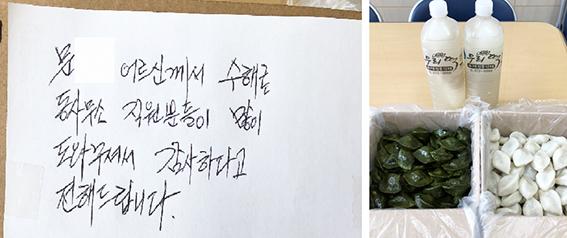 문 어르신께서 수해로
동사무소 직원분들이 많이
도와주셔서 감사하다고
전해드립니다.